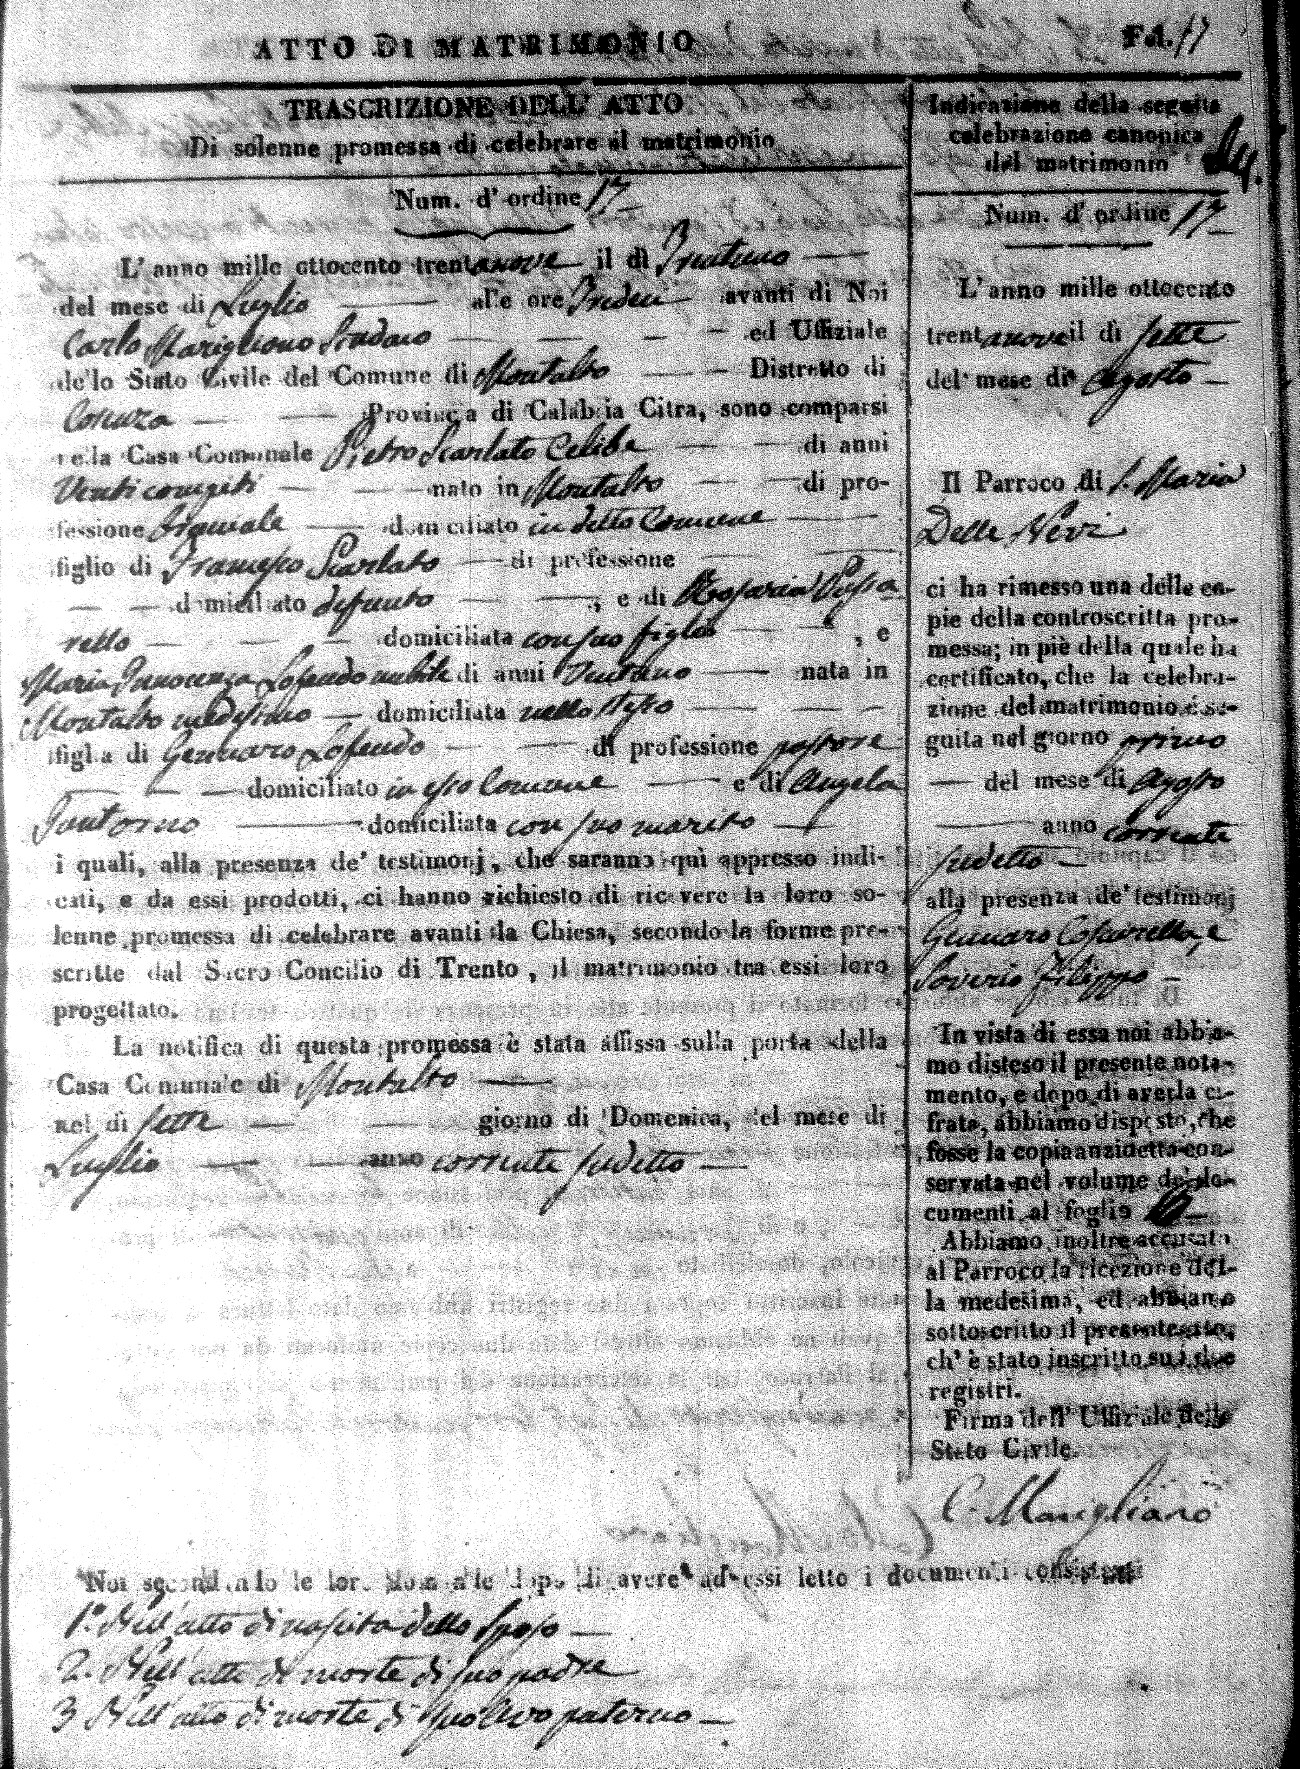 ATTO DI MATRIMONIO
Fol. 17
TRASCRIZIONE DELL' ATTO
Di solenne promessa di celebrare il matrimonio
Num. d' ordine 17
L' anno mille ottocento trentanove il dì Trentuno
del mese di Luglio alle ore avanti di Noi
Carlo Marigliano Sindaco ed Uffiziale
dello Stato Civile del Comune di Montalto Distretto di
Cosenza Provincia di Calabria Citra, sono comparsi
nella Casa Comunale Pietro Scarlato Celibe di anni
Venti nato in Montalto di pro-
fessione domiciliato in detto Comune
figlio di Francesco Scarlato di professione
domiciliato defunto , e di Rosaria Pissa
rello domiciliata con suo figlio , e
Maria Innocenza Lofendo nubile di anni Ventuno nata in
Montalto medesimo domiciliata nello stesso
figlia di Gennaro Lofendo di professione pastore
domiciliato in esso Comune e di Angela
Santorno domiciliata con suo marito
i quali, alla presenza de' testimonj, che saranno quì appresso indi-
cati, e da essi prodotti, ci hanno richiesto di ricevere la loro so-
lenne promessa di celebrare avanti la Chiesa, secondo le forme pre-
scritte dal Sacro Concilio di Trento, il matrimonio tra essi loro
progettato.
La notifica di questa promessa è stata affissa sulla porta della
Casa Comunale di Montalto
nel dì sette giorno di Domenica, del mese di
Luglio anno corrente sudetto
Indicazione della seguita
celebrazione canonica
del matrimonio
Num. d' ordine 17
L' anno mille ottocento
trentanove il dì sette
del mese di Agosto
Il Parroco di S. Maria
Delle Nevi
ci ha rimesso una delle co-
pie della controscritta pro-
messa; in piè della quale ha
certificato, che la celebra-
zione del matrimonio è se-
guita nel giorno primo
del mese di Agosto
anno corrente
sudetto
alla presenza de' testimonj
Gennaro e
Saverio Filippo
In vista di essa noi abbia-
mo disteso il presente nota-
mento, e dopo di averla ci-
frata, abbiamo disposto, che
fosse la copia anzidetta con-
servata nel volume de' do-
cumenti al foglio
Abbiamo inoltre accusato
al Parroco la ricezione del-
la medesima, ed abbiamo
sottoscritto il presente atto,
ch' è stato inscritto su i due
registri.
Firma dell' Uffiziale dello
Stato Civile.
C. Marigliano
Noi secondando le loro domande dopo di avere ad essi letto i documenti consistenti
1.° Nell' atto di nascita dello sposo
2. Nell' atto di morte di suo padre
3 Nell' atto di morte di suo Avo paterno